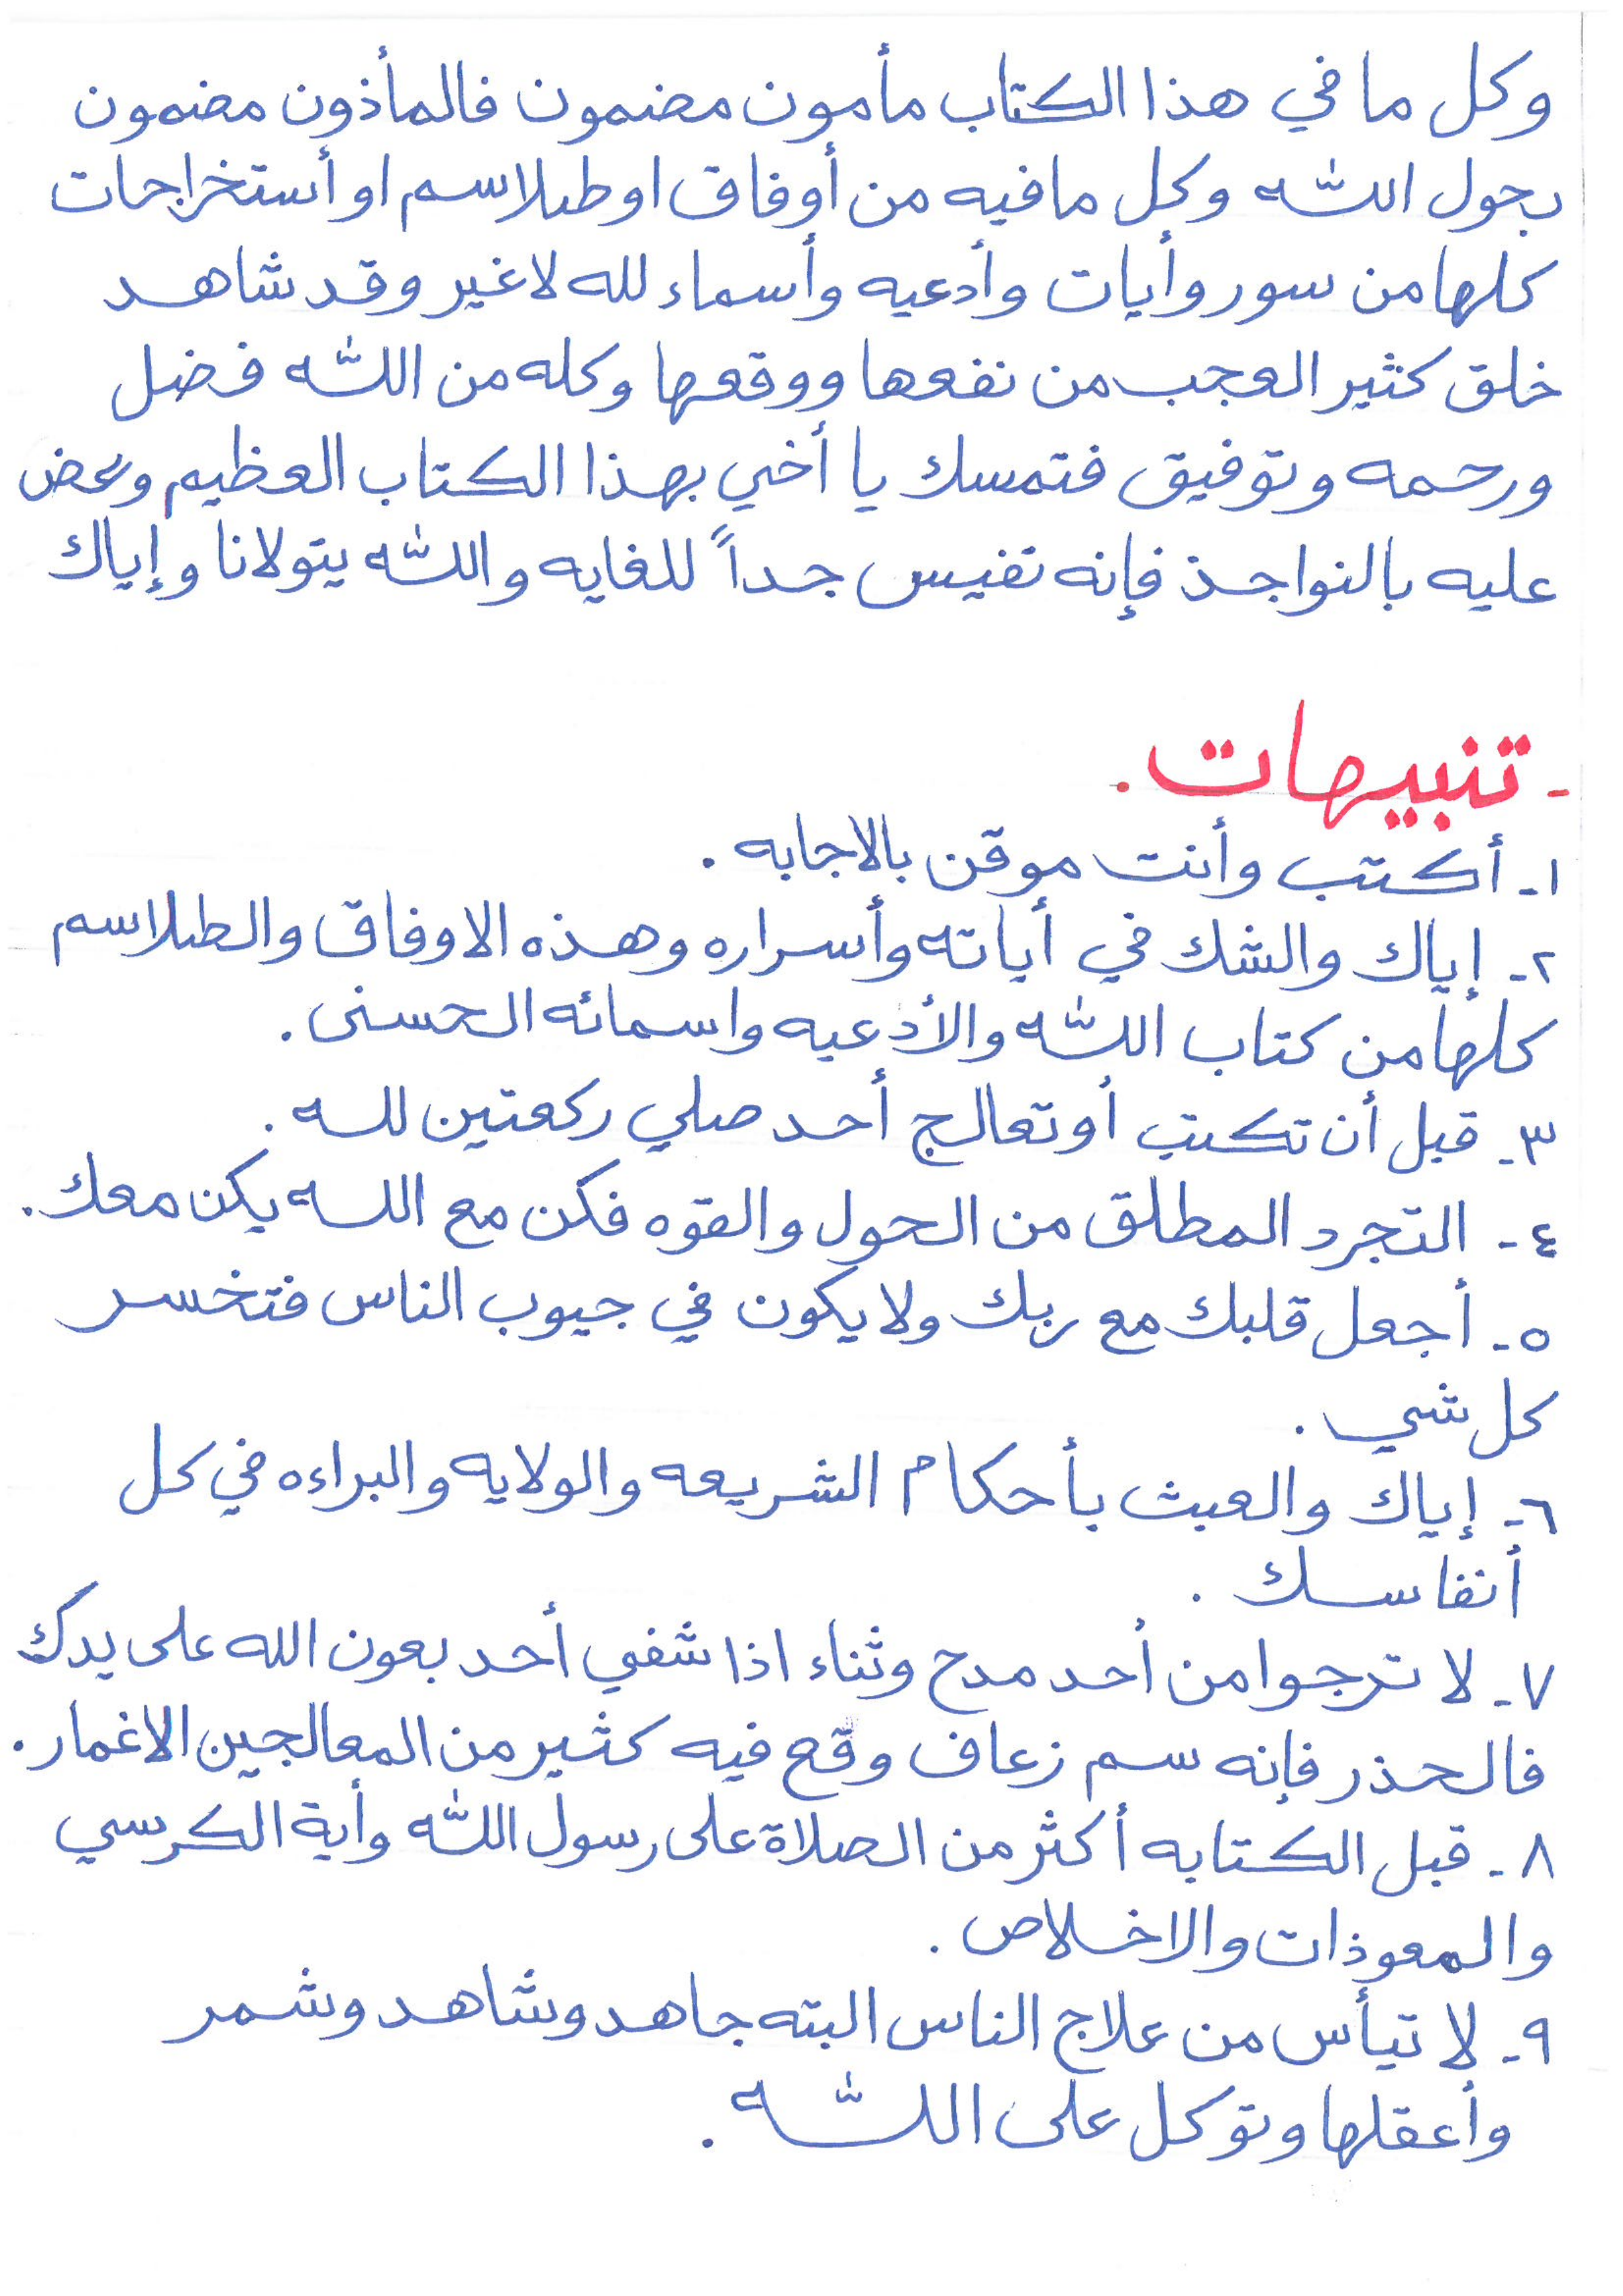 وكل ما في هذا الكتاب مأمون مضمون فالمأذون مضمون
بحول الله وكل مافيه من أوفاق او طلاسم او أستخراجات
كلها من سور وأيات وأدعيه وأسماء لله لاغير وقد شاهد
خلق كثير العجب من نفعها ووقعها وكله من الله فضل
ورحمه وتوفيق فتمسك يا أخي بهذا الكتاب العظيم وعض
عليه بالنواجذ فإنه نفيس جداً للغايه والله يتولانا وإياك
- تنبيهات .
١- أكتب وأنت موقن بالاجابه .
٢- إياك والشك في أياته وأسراره وهذه الاوفاق والطلاسم
كلها من كتاب الله والأدعيه واسمائه الحسنى .
٣- قبل أن تكتب أو تعالج أحد صلي ركعتين لله .
٤- التجرد المطلق من الحول والقوه فكن مع الله يكن معك .
٥- أجعل قلبك مع ربك ولا يكون في جيوب الناس فتخسر
كل شي .
٦- إياك والعبث بأحكام الشريعه والولايه والبراءه في كل
أنفاسك .
٧- لا ترجوا من أحد مدح وثناء اذا شفي أحد بعون الله على يدك
فالحذر فإنه سم زعاف وقع فيه كثير من المعالجين الاغمار .
٨- قبل الكتابه أكثر من الصلاة على رسول الله وأية الكرسي
والمعوذات والاخلاص .
٩- لا تيأس من علاج الناس البته جاهد وشاهد وشمر
وأعقلها وتوكل على الله .